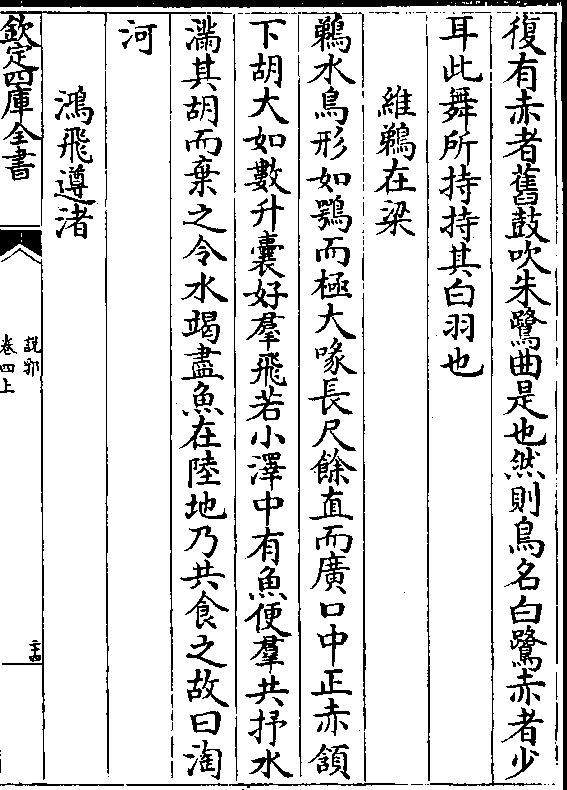 復有赤者舊鼓吹朱鷺曲是也然則鳥名白鷺赤者少
耳此舞所持持其白羽也
維鵜在梁
鵜水鳥形如鶚而極大喙長尺餘直而廣口中正赤頷
下胡大如數升囊好羣飛若小澤中有魚便羣共抒水
滿其胡而棄之令水竭盡魚在陸地乃共食之故曰淘
河
鴻飛遵渚
欽定四庫全書
說郛
卷四上
二十四